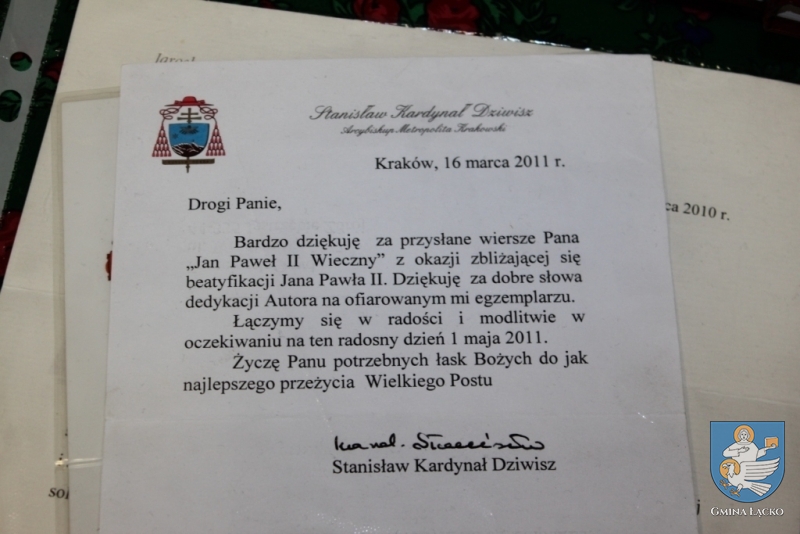 Stanisław Kardynał Dziwisz
Arcybiskup Metropolita Krakowski
Kraków, 16 marca 2011 r.
Drogi Panie,
Bardzo dziękuję za przysłane wiersze Pana
„Jan Paweł II Wieczny” z okazji zbliżającej się
beatyfikacji Jana Pawła II. Dziękuję za dobre słowa
dedykacji Autora na ofiarowanym mi egzemplarzu.
Łączymy się w radości i modlitwie w
oczekiwaniu na ten radosny dzień 1 maja 2011.
Życzę Panu potrzebnych łask Bożych do jak
najlepszego przeżycia Wielkiego Postu
Stanisław Kardynał Dziwisz
ca 2010 r.
GMINA ŁĄCKO